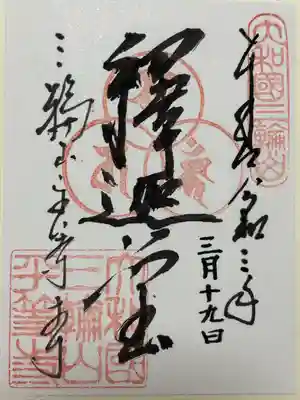 大和國三輪山
奉拝 令和三年
三月十九日
釋迦
三輪山平等寺
大和国
三輪山
平等寺